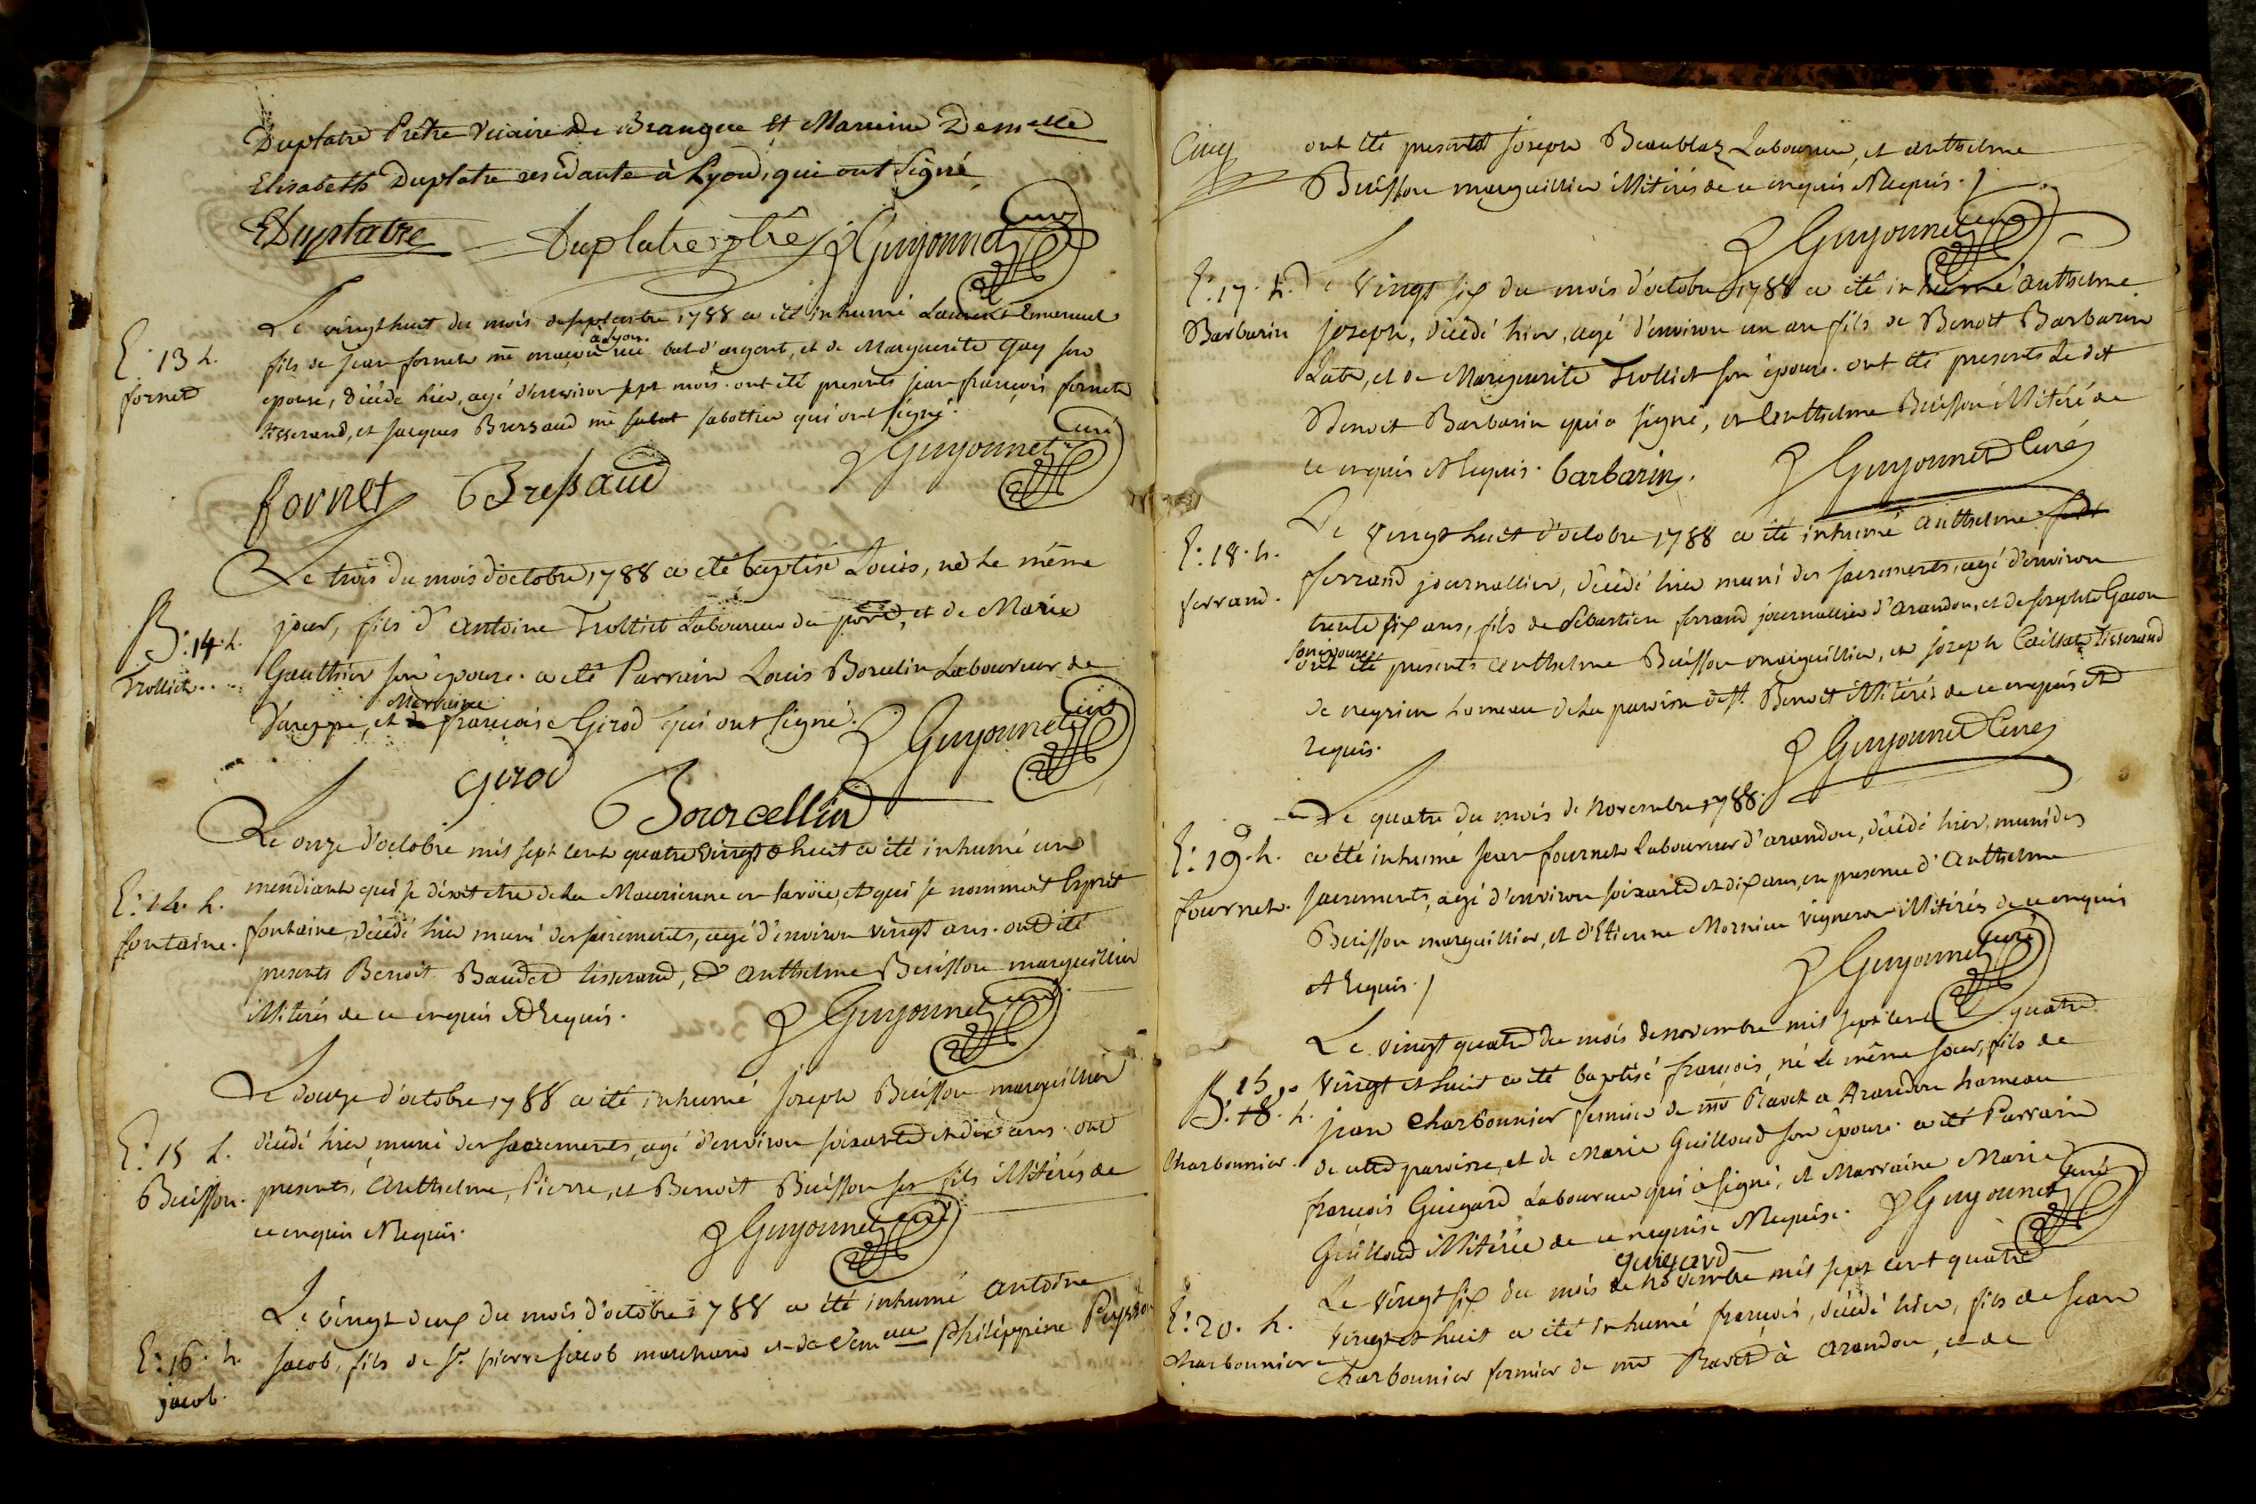 Duplatre Prêtre Vicaire de Brangue et Mareine Demelle
Elisabeth Duplatre residante à Lyon, qui ont signé
EDuplatre Duplatre ptre Guyonnet curé
Le vingt huit du mois de septembre 1788 a été inhumé Laurent Emanuel
E: 13 h. fornet
fils de jean fornet me maçon à Lyon rue bat d'argent, et de Marguerite Gay son
epouse, décédé hier, agé d'environ sept mois. ont été presents jean françois fornet
tisserand, et jacques Bressand me sabot sabottier qui ont signé.
Guyonnet curé
fornet Bressand
Le trois du mois d'octobre 1788 a eté baptisé Louis, né le même
B: 14. h. Trolliet
jour, fils d'antoine Trolliet Laboureur du port, et de Marie
Gauthier son épouse. a eté Parrain Louis Laboureur de
et Marraine françoise Girod qui ont signé. Guyonnet curé
girod Bourcellin
Le onze d'octobre mil sept cent quatre vingt huit a été inhumé un
E: 14. h. fontaine.
mendiant qui se disoit etre de la Maurienne en savoïe, et qui se nommoit Esprit
fontaine, décédé hier muni des sacrements, agé d'environ vingt ans. ont été
presents Benoit Baudet tisserand, et anthelme Buisson marguillier
illiterés de ce enquis et requis. Guyonnet curé
Le douze d'octobre 1788 a été inhumé joseph Buisson marguillier
E: 15 h. Buisson.
décédé hier, muni des sacrements, agé d'environ soixante et dix ans. ont
presents, Anthelme, Pierre, et Benoit Buisson ses fils illitérés de
ce enquis et requis. Guyonnet curé
Le vingt deux du mois d'octobre 1788 a été inhumé antoine
E: 16. h. jacob.
jacob, fils de Sr. pierre jacob marchand et de Philippine
Cinq
ont été presents joseph Laboureur, et anthelme
Buisson marguillier illitérés de ce enquis et requis.
Guyonnet curé
E: 17. h. Barbarin
Le vingt six du mois d'octobre 1788 a été inhumé anthelme
joseph, décédé hier, agé d'environ un an fils de Benoit Barbarin
et de Marguerite Trolliet son épouse. ont été presents le dit
Benoit Barbarin qui a signé, et anthelme Buisson illitéré de
ce enquis et requis. barbarin. Guyonnet Curé
E: 18. h. ferrand.
Le vingt huit d'octobre 1788 a été inhumé anthelme
ferrand journallier, décédé hier muni des sacrements, agé d'environ
trente six ans, fils de Sébastien ferrand journallier d'arandon, et de josephte Gacon
son epouse ont été presents anthelme Buisson marguillier, et joseph Caillat Tisserand
hameau de la paroisse de St. Benoit illitérés de ce enquis et
requis. Guyonnet Curé
Le quatre du mois de novembre 1788.
E: 19. h. fournet.
a été inhumé jean fournet laboureur d'arandon, décédé hier, muni des
sacrements, agé d'environ soixante et dix ans, en presence d'Anthelme
Buisson marguillier, et d'Etienne Mornieu vigneron illitérés de ce enquis
et requis. Guyonnet curé
Le vingt quatre du mois de novembre mil sept cent quatre
B: 15 18. h. Charbonnier.
vingt et huit a été baptisé françois, né le même jour, fils de
jean Charbonnier fermier de me Ravet a Arandon hameau
de cette paroisse, et de Marie Guilloud son épouse. a été Parrain
françois Guigard Laboureur qui a signé, et Marraine Marie
Guilloud illitérée de ce enquise et requise. Guyonnet curé
guigard
E: 20. h. Charbonnier
Le vingt six du mois de novembre mil sept cent quatre
vingt et huit a été inhumé françois, décédé hier, fils de jean
Charbonnier fermier de me Ravet à arandon, et de